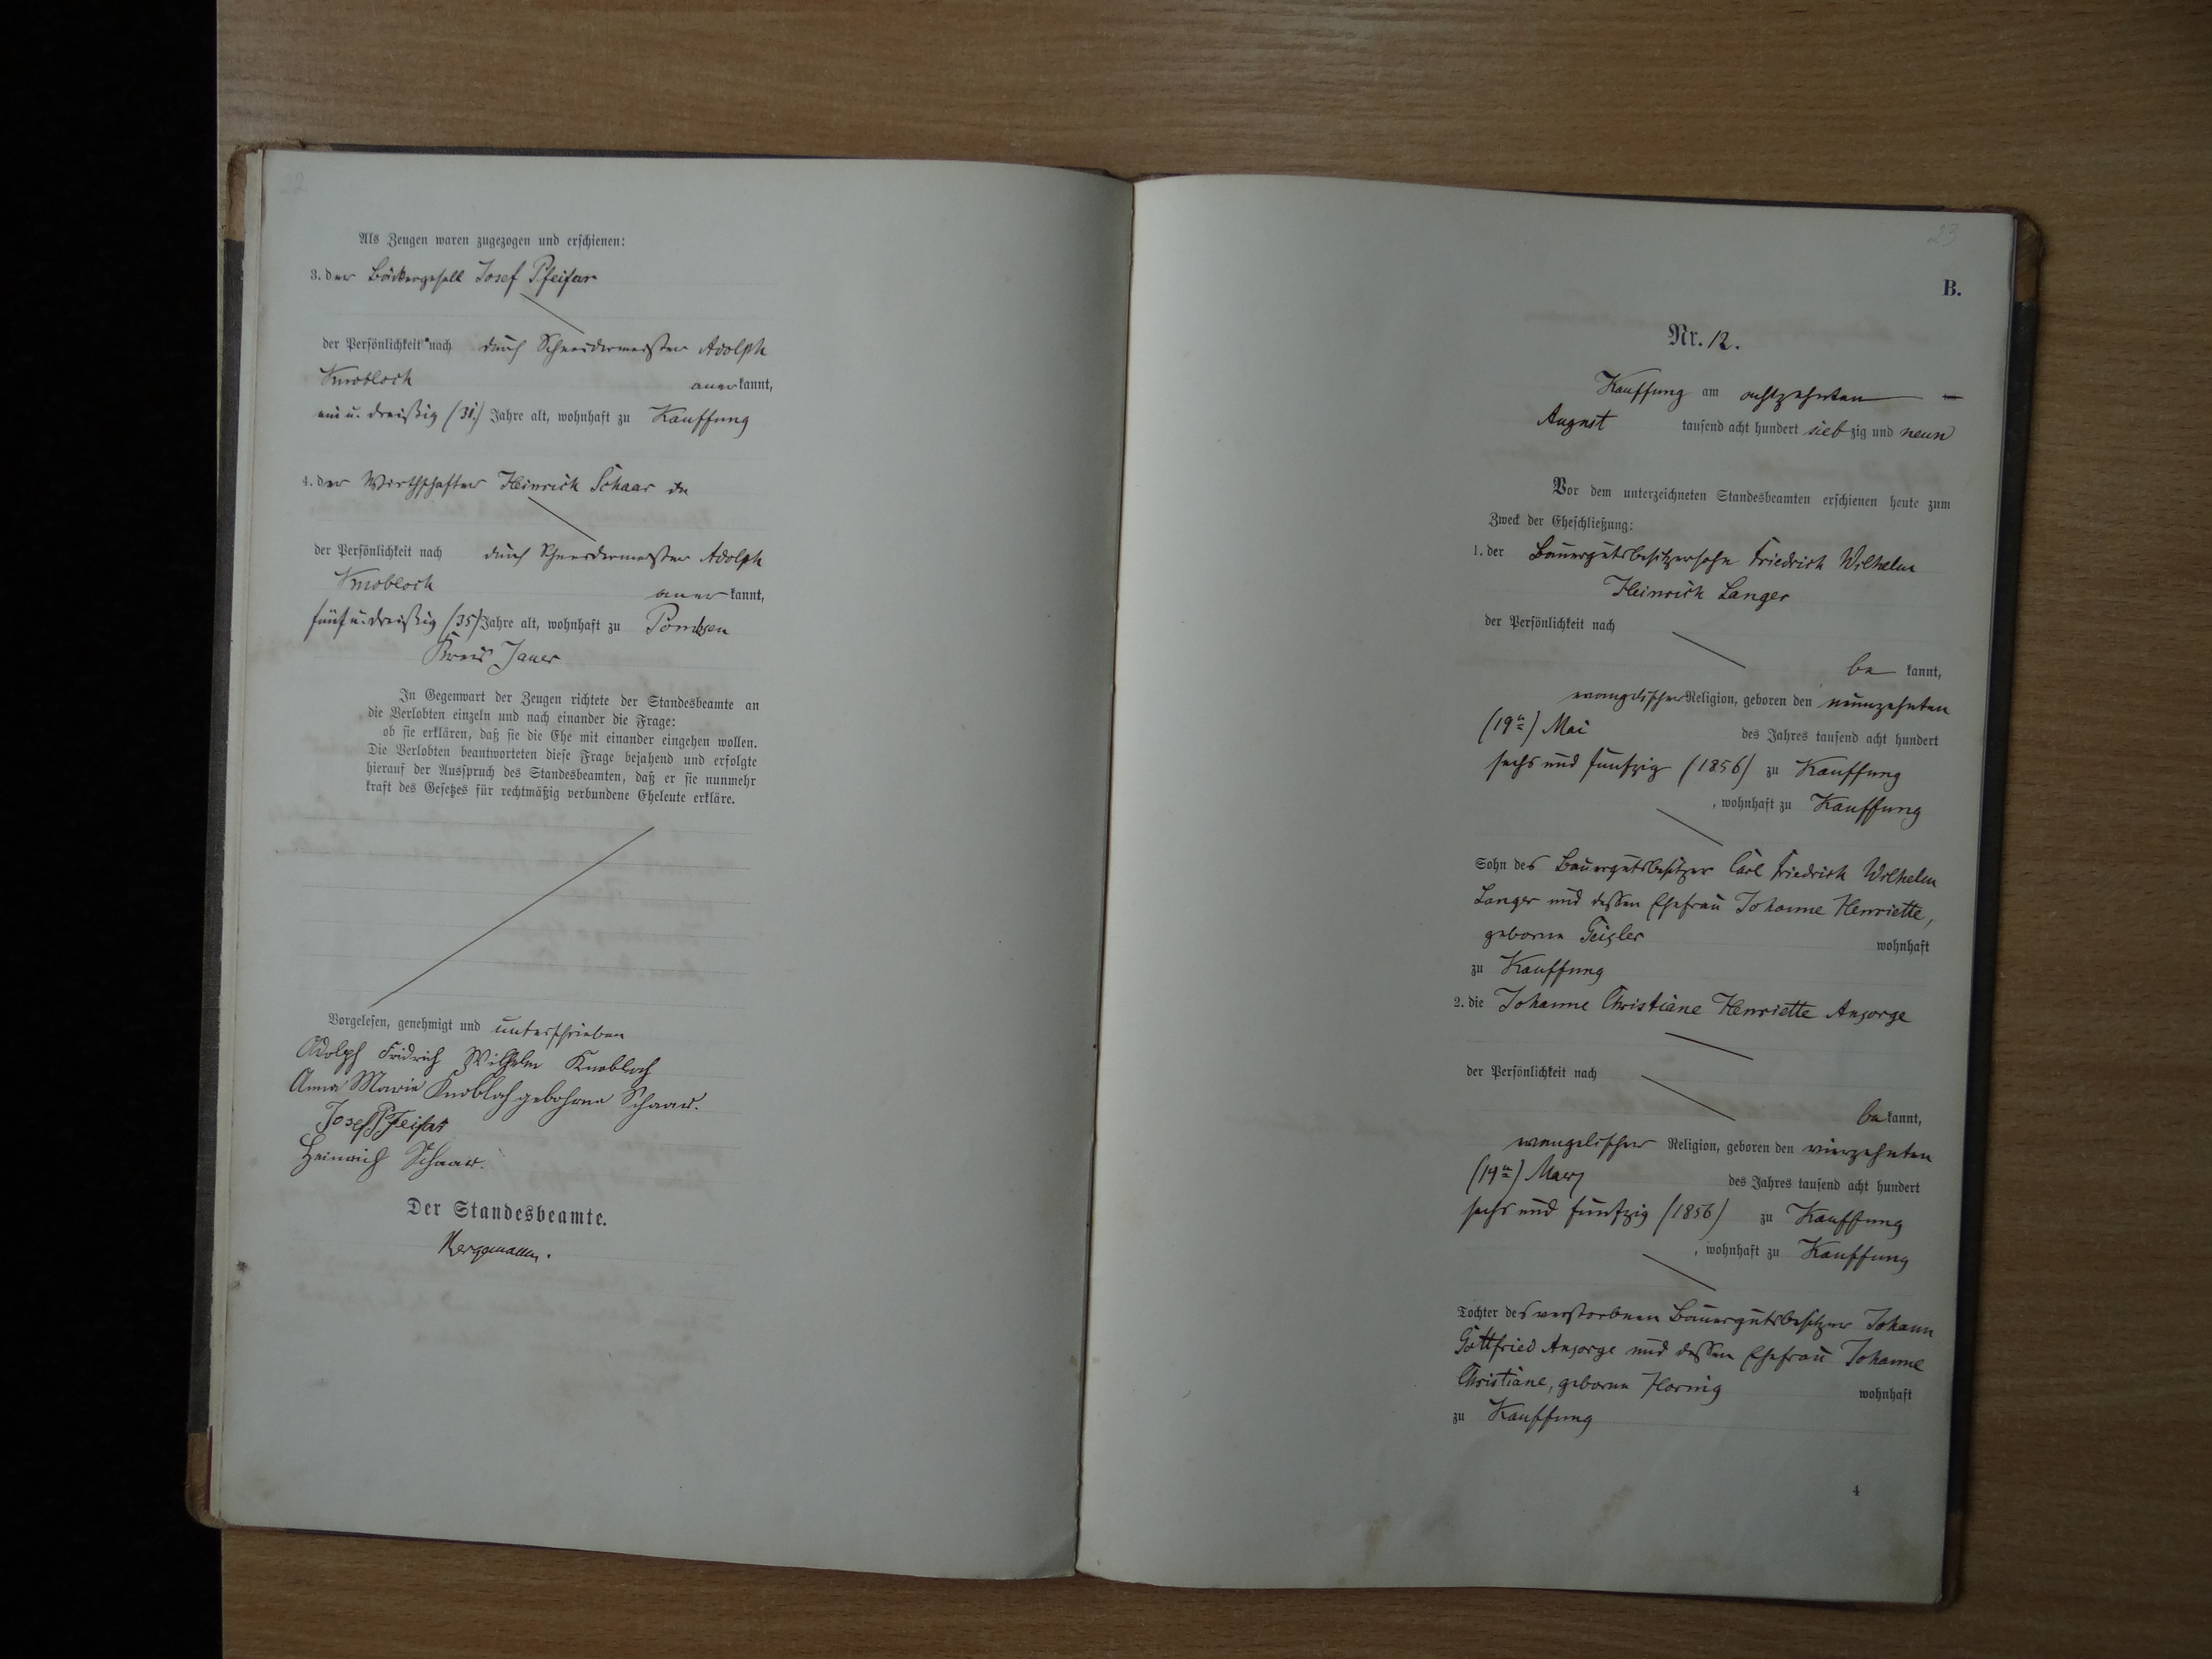 22
Als Zeugen waren zugezogen und erschienen:
3. der Bäckergesell Josef Pfeifer
der Persönlichkeit nach durch Schneidermeister Adolph
Knobloch anerkannt,
ein u. dreißig (31.) Jahre alt, wohnhaft zu Kauffung
4. der Wirthschafter Heinrich Schaar
der Persönlichkeit nach durch Schneidermeister Adolph
Knobloch anerkannt,
fünf u. dreißig (35) Jahre alt, wohnhaft zu Pombsen
Kreis Jauer
In Gegenwart der Zeugen richtete der Standesbeamte an
die Verlobten einzeln und nach einander die Frage:
ob sie erklären, daß sie die Ehe mit einander eingehen wollen.
Die Verlobten beantworteten diese Frage bejahend und erfolgte
hierauf der Ausspruch des Standesbeamten, daß er sie nunmehr
kraft des Gesetzes für rechtmäßig verbundene Eheleute erkläre.
Vorgelesen, genehmigt und unterschrieben
Adolph Fridrich Wilhelm Knobloch
Anna Marie Knobloch gebohrne Schaar.
Josef Pfeifer
Heinrich Schaar.
Der Standesbeamte.
23
B.
Nr. 12.
Kauffung am achtzehnten
August tausend acht hundert siebzig und neun
Vor dem unterzeichneten Standesbeamten erschienen heute zum
Zweck der Eheschließung:
1. der Bauergutsbesitzersohn Friedrich Wilhelm
Heinrich Langer
der Persönlichkeit nach
bekannt,
evangelischer Religion, geboren den neunzehnten
(19ten) Mai des Jahres tausend acht hundert
sechs und fünfzig (1856) zu Kauffung
, wohnhaft zu Kauffung
Sohn des Bauergutsbesitzer Carl Friedrich Wilhelm
Langer und dessen Ehefrau Johanne Henriette,
geborne Geisler wohnhaft
zu Kauffung
2. die Johanne Christiane Henriette Ansorge
der Persönlichkeit nach
bekannt,
evangelischer Religion, geboren den vierzehnten
(14ten) Maerz des Jahres tausend acht hundert
sechs und fünfzig (1856) zu Kauffung
, wohnhaft zu Kauffung
Tochter des verstorbenen Bauergutsbesitzer Johann
Gottfried Ansorge und dessen Ehefrau Johanne
Christiane, geborne Hornig wohnhaft
zu Kauffung
4